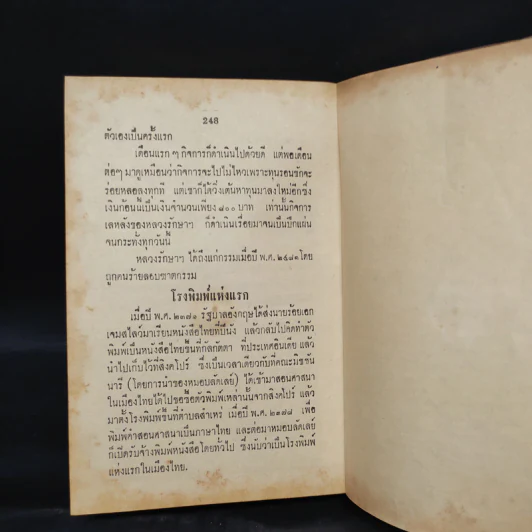 248
ตัวเองเป็นครั้งแรก
เดือนแรก ๆ กิจการก็ดำเนินไปด้วยดี แต่พอเดือน
ต่อๆ มาดูเหมือนว่ากิจการจะไปไม่ไหวเพราะทุนรอนชักจะ
ร่อยหลอลงทุกที แต่เขาก็ได้วิ่งเต้นหาทุนมาลงใหม่อีกซึ่ง
เงินก้อนนี้เป็นเงินจำนวนเพียง ๘๐๐ บาท เท่านั้นกิจการ
เลหลังของหลวงรักษาฯ ก็ดำเนินเรื่อยมาจนเป็นปึกแผ่น
จนกระทั่งทุกวันนี้
หลวงรักษาฯ ได้ถึงแก่กรรมเมื่อปี พ.ศ. ๒๔๘๑ โดย
ถูกคนร้ายลอบฆาตกรรม
โรงพิมพ์แห่งแรก
เมื่อปี พ.ศ. ๒๓๗๐ รัฐบาลอังกฤษได้ส่งนายร้อยเอก
เจมสโลว์มาเรียนหนังสือไทยที่ปีนัง แล้วกลับไปคิดทำตัว
พิมพ์เป็นหนังสือไทยขึ้นที่กัลกัตตา ที่ประเทศอินเดีย แล้ว
นำไปเก็บไว้ที่สิงคโปร์ ซึ่งเป็นเวลาเดียวกับที่คณะมิชชัน
นารี (โดยการนำของหมอบลัดเลย์) ได้เข้ามาสอนศาสนา
ในเมืองไทยได้ไปขอซื้อตัวพิมพ์เหล่านั้นจากสิงคโปร์ แล้ว
มาตั้งโรงพิมพ์ขึ้นที่ตำบลสำเหร่ เมื่อปี พ.ศ. ๒๓๗๘ เพื่อ
พิมพ์คำสอนศาสนาเป็นภาษาไทย และต่อมาหมอบลัดเลย์
ก็เปิดรับจ้างพิมพ์หนังสือโดยทั่วไป ซึ่งนับว่าเป็นโรงพิมพ์
แห่งแรกในเมืองไทย.